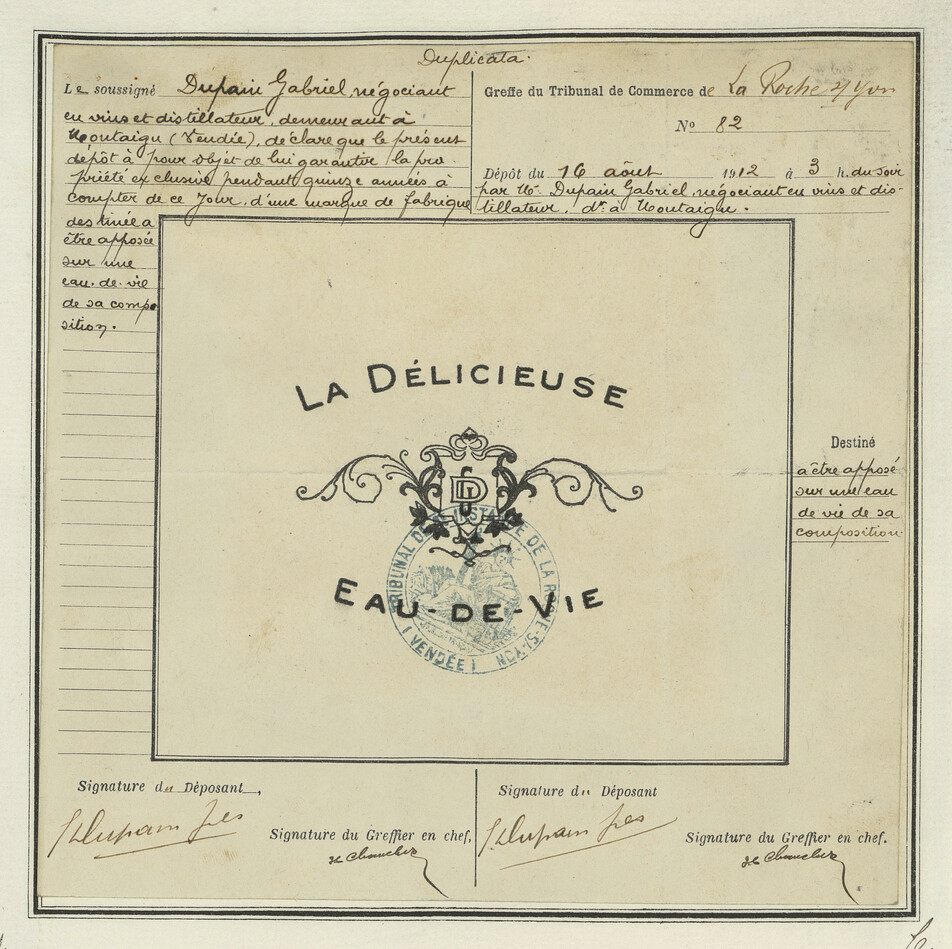 Duplicata.
Le soussigné Dupain Gabriel, négociant
en vins et distillateur, demeurant à
Montaigu (Vendée), déclare que le présent
dépôt à pour objet de lui garantir la pro-
priété exclusive pendant quinze années à
compter de ce jour, d'une marque de fabrique
destinée a
être apposée
sur une
eau-de-vie
de sa compo
sition.
Greffe du Tribunal de Commerce de La Roche s/ Yon
No 82
Dépôt du 16 août 1912 à 3 h. du soir
par Mr Dupain Gabriel, négociant en vins et dis-
tillateur, dt à Montaigu.
LA DÉLICIEUSE
EAU-DE-VIE
TRIBUNAL DE INSTANCE DE LA ROCHE-S-YON
(VENDÉE)
Destiné
a être apposé
sur une eau
de vie de sa
composition
Signature du Déposant
Dupain
Signature du Greffier en chef,
Signature du Déposant
Dupain
Signature du Greffier en chef.